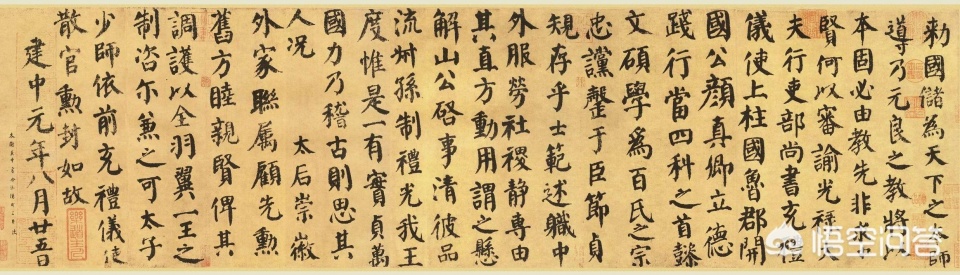 勅國儲為天下之本師
導乃元良之教將以
本固必由教先非求忠
賢何以審諭光祿大
夫行吏部尚書充禮
儀使上柱國魯郡開
國公顏真卿立德
踐行當四科之首懿
文碩學為百氏之宗
忠讜罄于臣節貞
規存乎士範述職中
外服勞社稷靜專由
其直方動用謂之懸
解山公啓事清彼品
流叔孫制禮光我王
度惟是一有實貞萬
國力乃稽古則思其
人況 太后崇徽
外家聯属顧先勳
舊方睦親賢俾其
調護以全羽翼一王之
制咨尓兼之可太子
少師依前充禮儀使
散官勳封如故
建中元年八月廿五日
悟空问答